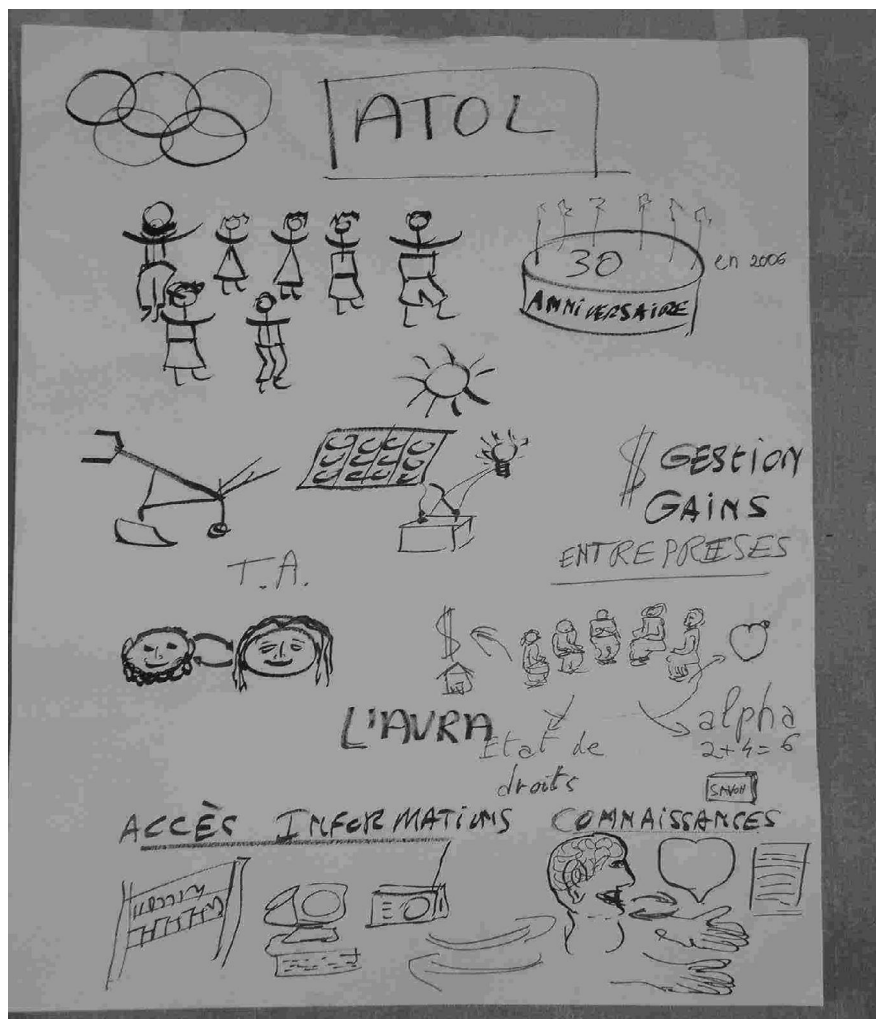 ATOL
30
ANNIVERSAIRE
en 2006
$ GESTION
GAINS
ENTREPRISES
T.A.
$
L'AVRA
Etat de
droits
alpha
2+4=6
SAVON
ACCÈS INFORMATIONS CONNAISSANCES